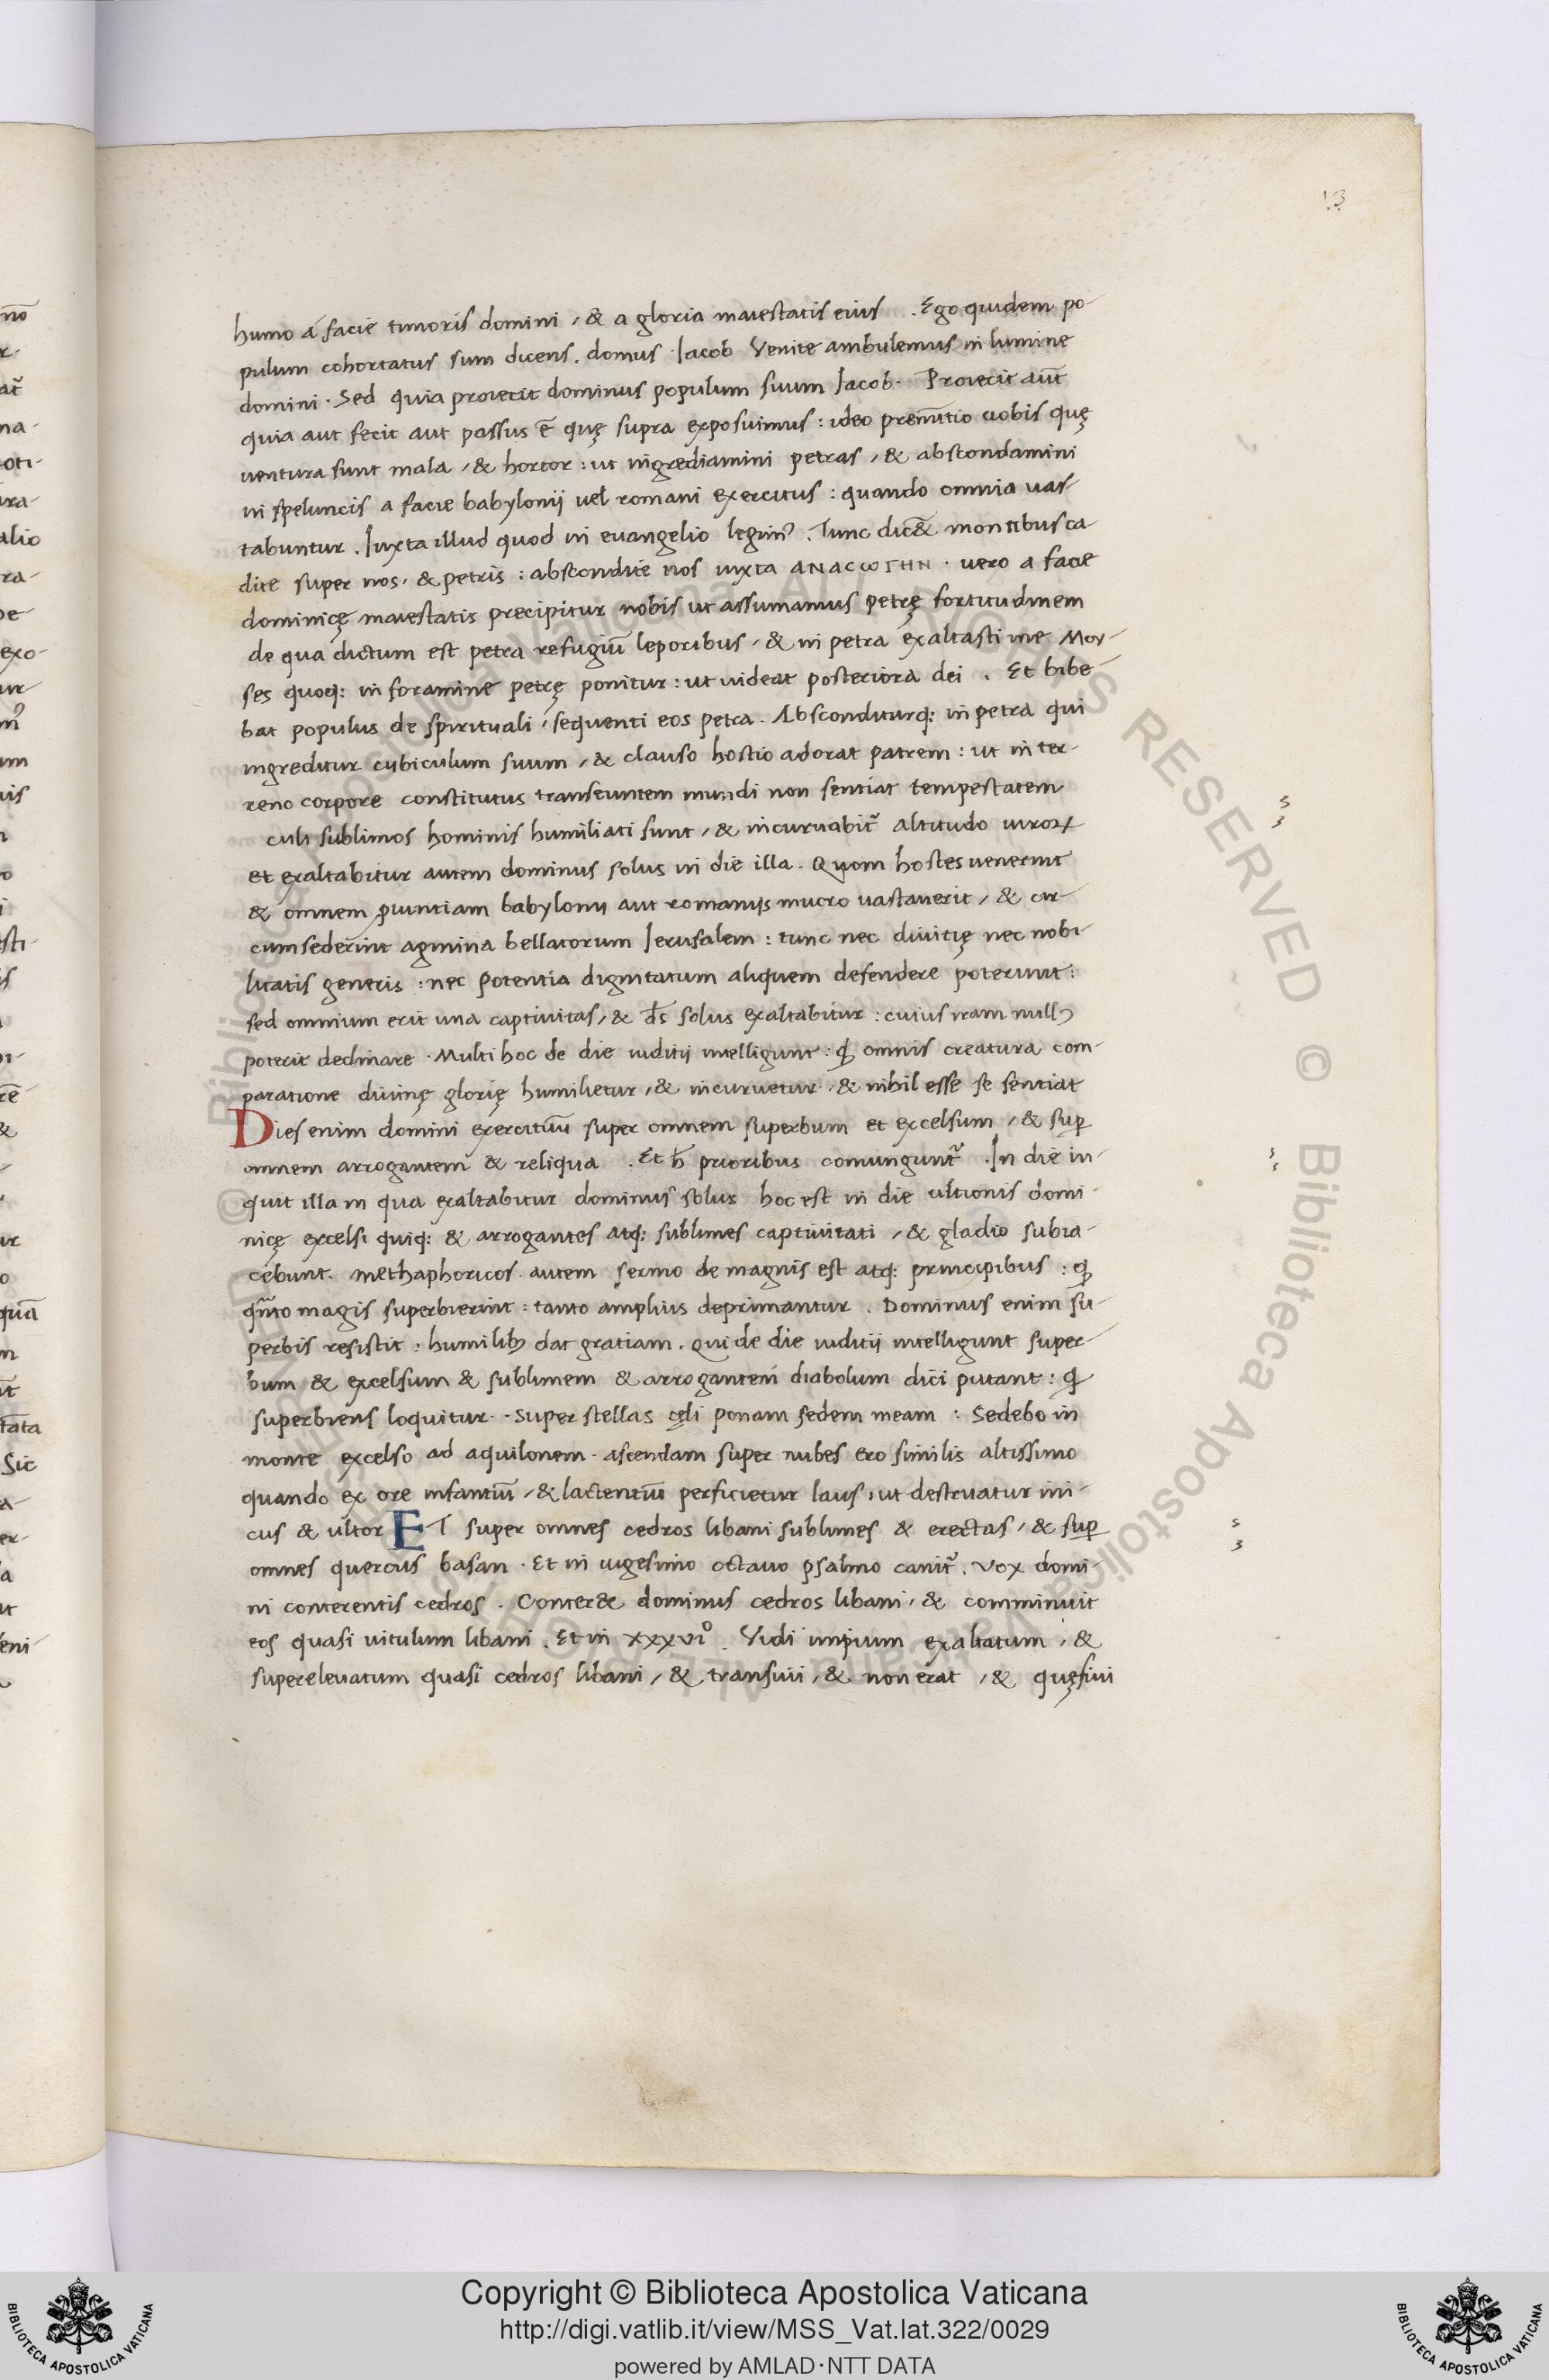 13
humo a facie timoris domini, & a gloria maiestatis eius . Ego quidem po-
pulum cohortatus sum dicens. domus Iacob Venite ambulemus in lumine
domini. Sed quia proiecit dominus populum suum Iacob. Proiecit aūt
quia aut fecit aut passus ē quę supra exposuimus: ideo prenūtio uobis quę
uentura sunt mala, & hortor: ut ingrediamini petras, & abscondamini
in speluncis a facie babylonij uel romani exercitus: quando omnia uas-
tabuntur. Iuxta illud quod in euangelio legimꝰ. Tunc dic& montibus ca
dite super nos, & petris: abscondite nos iuxta ΑΝΑCωΓΗΝ. uero a facie
dominicę maiestatis precipitur nobis ut assumamus petrę fortitudinem
de qua dictum est petra refugiū leporibus, & in petra exaltasti me Moy-
ses quoq: in foramine petrę ponitur: ut uideat posteriora dei . Et bibe-
bat populus de spirituali, sequenti eos petra. Absconditurq: in petra qui
ingreditur cubiculum suum, & clauso hostio adorat patrem: ut in ter-
reno corpore constitutus transeuntem mundi non sentiat tempestatem
culi sublimos hominis humiliati sunt, & incuruabit᷑ altitudo uiroꝝ
et exaltabitur autem dominus solus in die illa. Quom hostes uenerint
& omnem ꝓuintiam babylonii aut romanijs mucro uastauerit, & cir-
cumsederint agmina bellatorum Ierusalem: tunc nec diuitię nec nobi
litatis generis: nec potentia dignitatum aliquem defendere poterunt:
sed omnium erit una captiuitas, & d̄s solus exaltabitur: cuius iram nullꝰ
poterit declinare. Multi hoc de die iuditij intelligunt: ꝙ omnis creatura com-
paratione diuinę glorię humilietur, & incuruetur, & nihil esse se sentiat
Dies enim domini exercituū super omnem superbum et excelsum, & suꝑ
omnem arrogantem & reliqua . Et h̄ prioribus coniungunt᷑ . In die in-
quit illa in qua exaltabitur dominus solus hoc est in die ultionis domi-
nicę excelsi quiq: & arrogantes atq: sublimes captiuitati, & gladio subia-
cebunt. methaphoricos. autem sermo de magnis est atq: principibus: ꝙ
q̄nto magis superbierint: tanto amplius deprimantur . Dominus enim su-
perbis resistit: humilibꝰ dat gratiam. Qui de die iuditii intelligunt super-
bum & excelsum & sublimem & arrogantem diabolum dici putant: ꝙ
superbiens loquitur. Super stellas cęli ponam sedem meam : Sedebo in
monte excelso ad aquilonem. ascendam super nubes ero similis altissimo
quando ex ore infantiū, & lactentiū perficietur laus, ut destruatur ini-
cus & ultor ET super omnes cedros libani sublimes & erectas, & suꝑ
omnes quercus basan. Et in uigesimo octauo psalmo canit᷑. Vox domi-
ni conterentis cedros . Conter& dominus cedros libani, & comminuit
eos quasi uitulum libani . Et in xxxvi° . Vidi impium exaltatum, &
supereleuatum quasi cedros libani, & transiui, & non erat, & quęsiui
© Biblioteca Apostolica Vaticana ALL RIGHTS RESERVED © Biblioteca Apostolica Vaticana ALL RIGHTS RESERVED
Copyright © Biblioteca Apostolica Vaticana
http://digi.vatlib.it/view/MSS_Vat.lat.322/0029
powered by AMLAD·NTT DATA
BIBLIOTECA APOSTOLICA VATICANA
BIBLIOTECA APOSTOLICA VATICANA